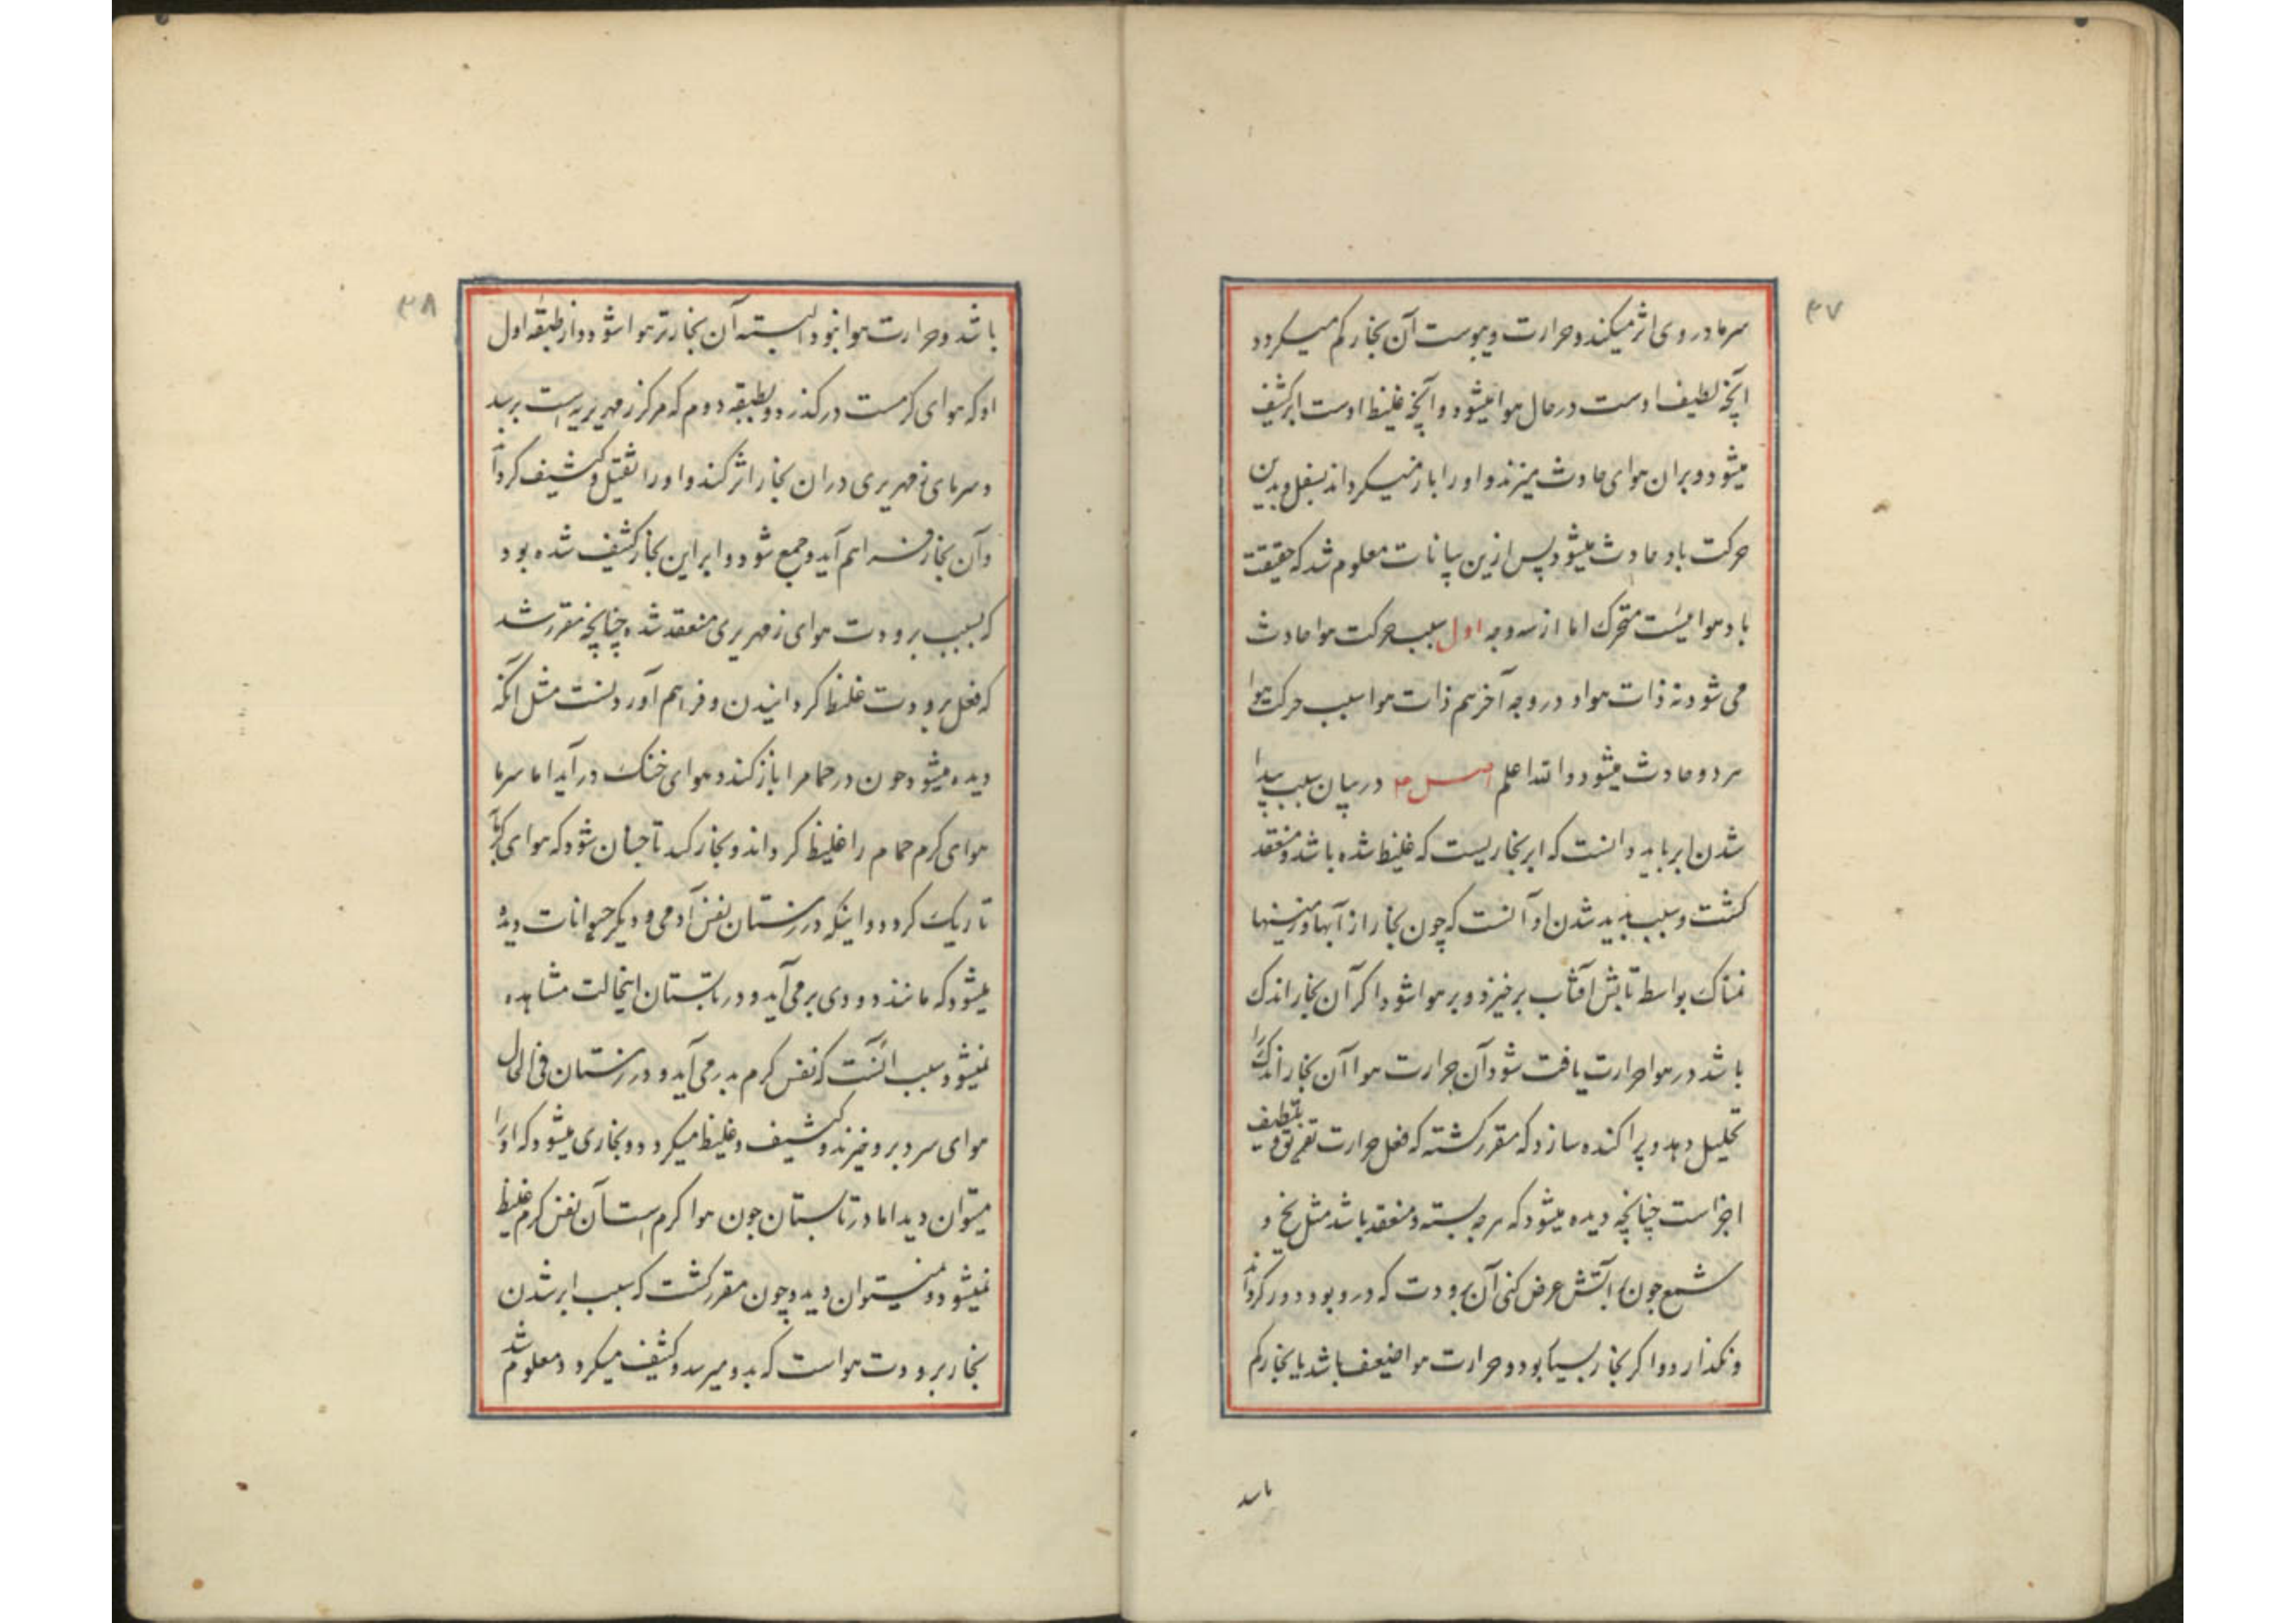 ۴۷
سرما در وی اثر میکند و حرارت و یبوست آن بخار کم میکردد
آنچه لطیف اوست در حال هوا میشود و آنچه غلیظ اوست ابر کثیف
میشود و بران هوای حادث میزند و او را باز میکرداند بسفل و بدین
حرکت باد حادث میشود پس ازین بیانات معلوم شد که حقیقت
باد هوائیست متحرک اما از سه وجه اول سبب حرکت هوا حادث
می شود نه ذات هوا و در وجه آخر هم ذات هوا سبب حرکت هوا
هر دو حادث میشود والله اعلم در بیان سبب پیدا
شدن ابر باید دانست که ابر بخاریست که غلیظ شده باشد و منعقد
کشت و سبب پدید شدن او آنست که چون بخار از آبها و زمینها
نمناک بواسط تابش آفتاب برخیزد و بر هوا شود اکر آن بخار اندک
باشد در هوا حرارت یافت شود آن حرارت هوا آن بخار اندک را
تحلیل دهد و پراکنده سازد که مقرر کشته که فعل حرارت تفریق و تلطیف
اجزاست چنانچه دیده میشود که هر چه بسته و منعقد باشد مثل یخ و
شمع جون بر آتش عرض کنی آن برودت که درو بود دور کرداند
و بکذارد و اکر بخار بسیار بود و حرارت هوا ضعیف باشد یا بخار کم
باشد
۴۸
باشد و حرارت هوا نبود البته آن بخار تر هوا شود و از طبقه اول
او که هوای کرمست درکذرد و بطبقه دوم که مرکز زمهریریه است برسد
و سرمای زمهریری دران بخار اثر کند و او را ثقیل و کثیف کرداند
و آن بخار فراهم آید و جمع شود و ابر این بخار کثیف شده بود
که بسبب برودت هوای زمهریری منعقد شده چنانچه مقرر شد
که فعل برودت غلیظ کردانیدن و فراهم آوردنست مثل آنکه
دیده میشود جون در حمام را باز کنند و هوای خنک در آید اما سرما
هوای کرم حمام را غلیظ کرداند و بخار کند تا جنان شود که هوای کرمابه
تاریک کردد و اینکه در زمستان نفس آدمی و دیکر حیوانات دیده
میشود که مانند دودی بر می آید و در تابستان اینحالت مشاهده
نمیشود سبب آنست که نفس کرم بدر می آید و در زمستان فی الحال
هوای سرد برو میزند و کثیف و غلیظ میکردد و بخاری میشود که او را
میتوان دید اما در تابستان جون هوا کرم است آن نفس کرم غلیظ
نمیشود و نمیتوان دید و چون مقرر کشت که سبب ابر شدن
بخار برودت هواست که بدو میرسد و کثیف میکردد و معلوم شد